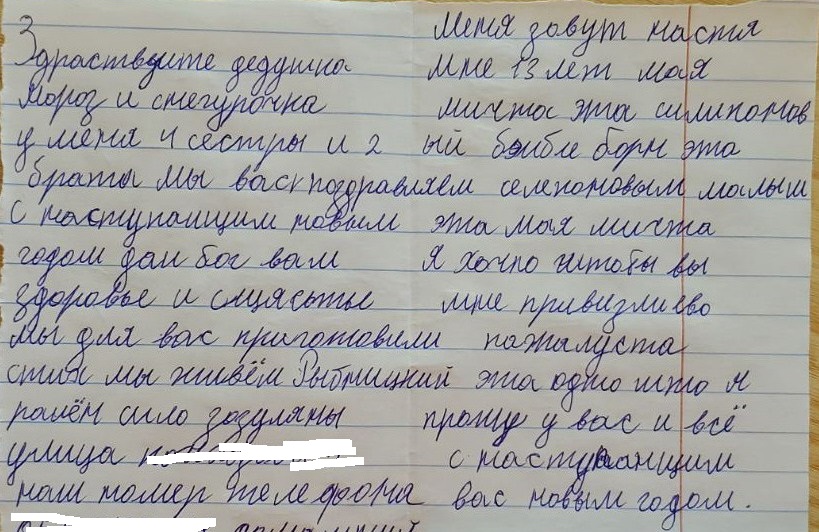 Здраствуите дедушка
мороз и снегурочка
у меня 4 сестры и 2
браты мы вас поздравляем
с наступаищим новым
годом дай бог вам
здоровье и сщясьтье
мы для вас приготовили
стих мы живём Рыбницкий
раён сило зозуляны
улица
наш номер телефона
Меня зовут настя
мне 13 лет мая
мичта эта силиконов
ый бэибе борн эта
селеконовым малыш
эта мая мичта
Я хочю штобы вы
мне привизли ево
пажалуста
эта одно што я
прошу у вас и всё
с наступаищим
вас новым годом.